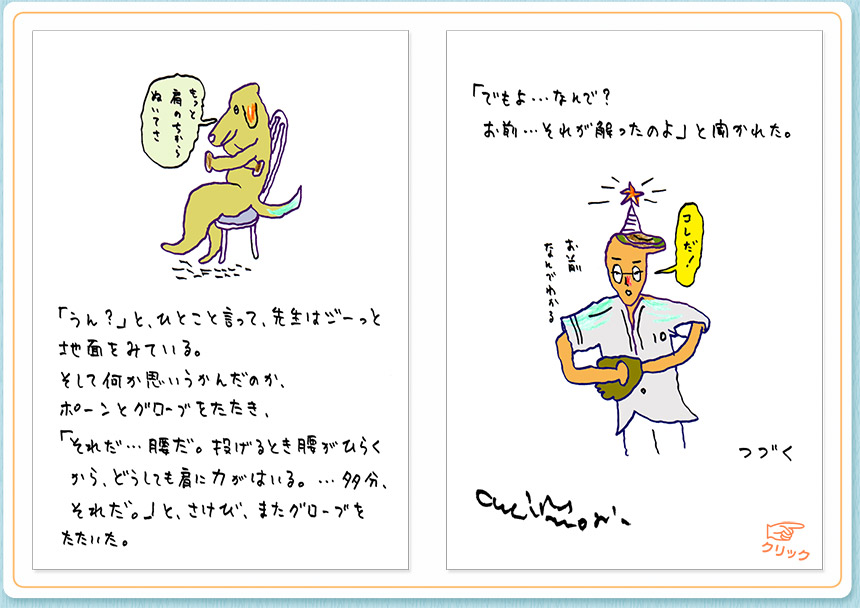 もっと
肩のちから
ぬいてさ
「うん？」と、ひとこと言って、先生はジーっと
地面をみている。
そして何か思いうかんだのか、
ポーンとグローブをたたき、
「それだ…腰だ。投げるとき腰がひらく
から、どうしても肩に力がはいる。…多分、
それだ。」と、さけび、またグローブを
たたいた。
「でもよ…なんで？
お前…それが解ったのよ」と聞かれた。
コレだ！
お前
なんでわかる
10
つづく
クリック